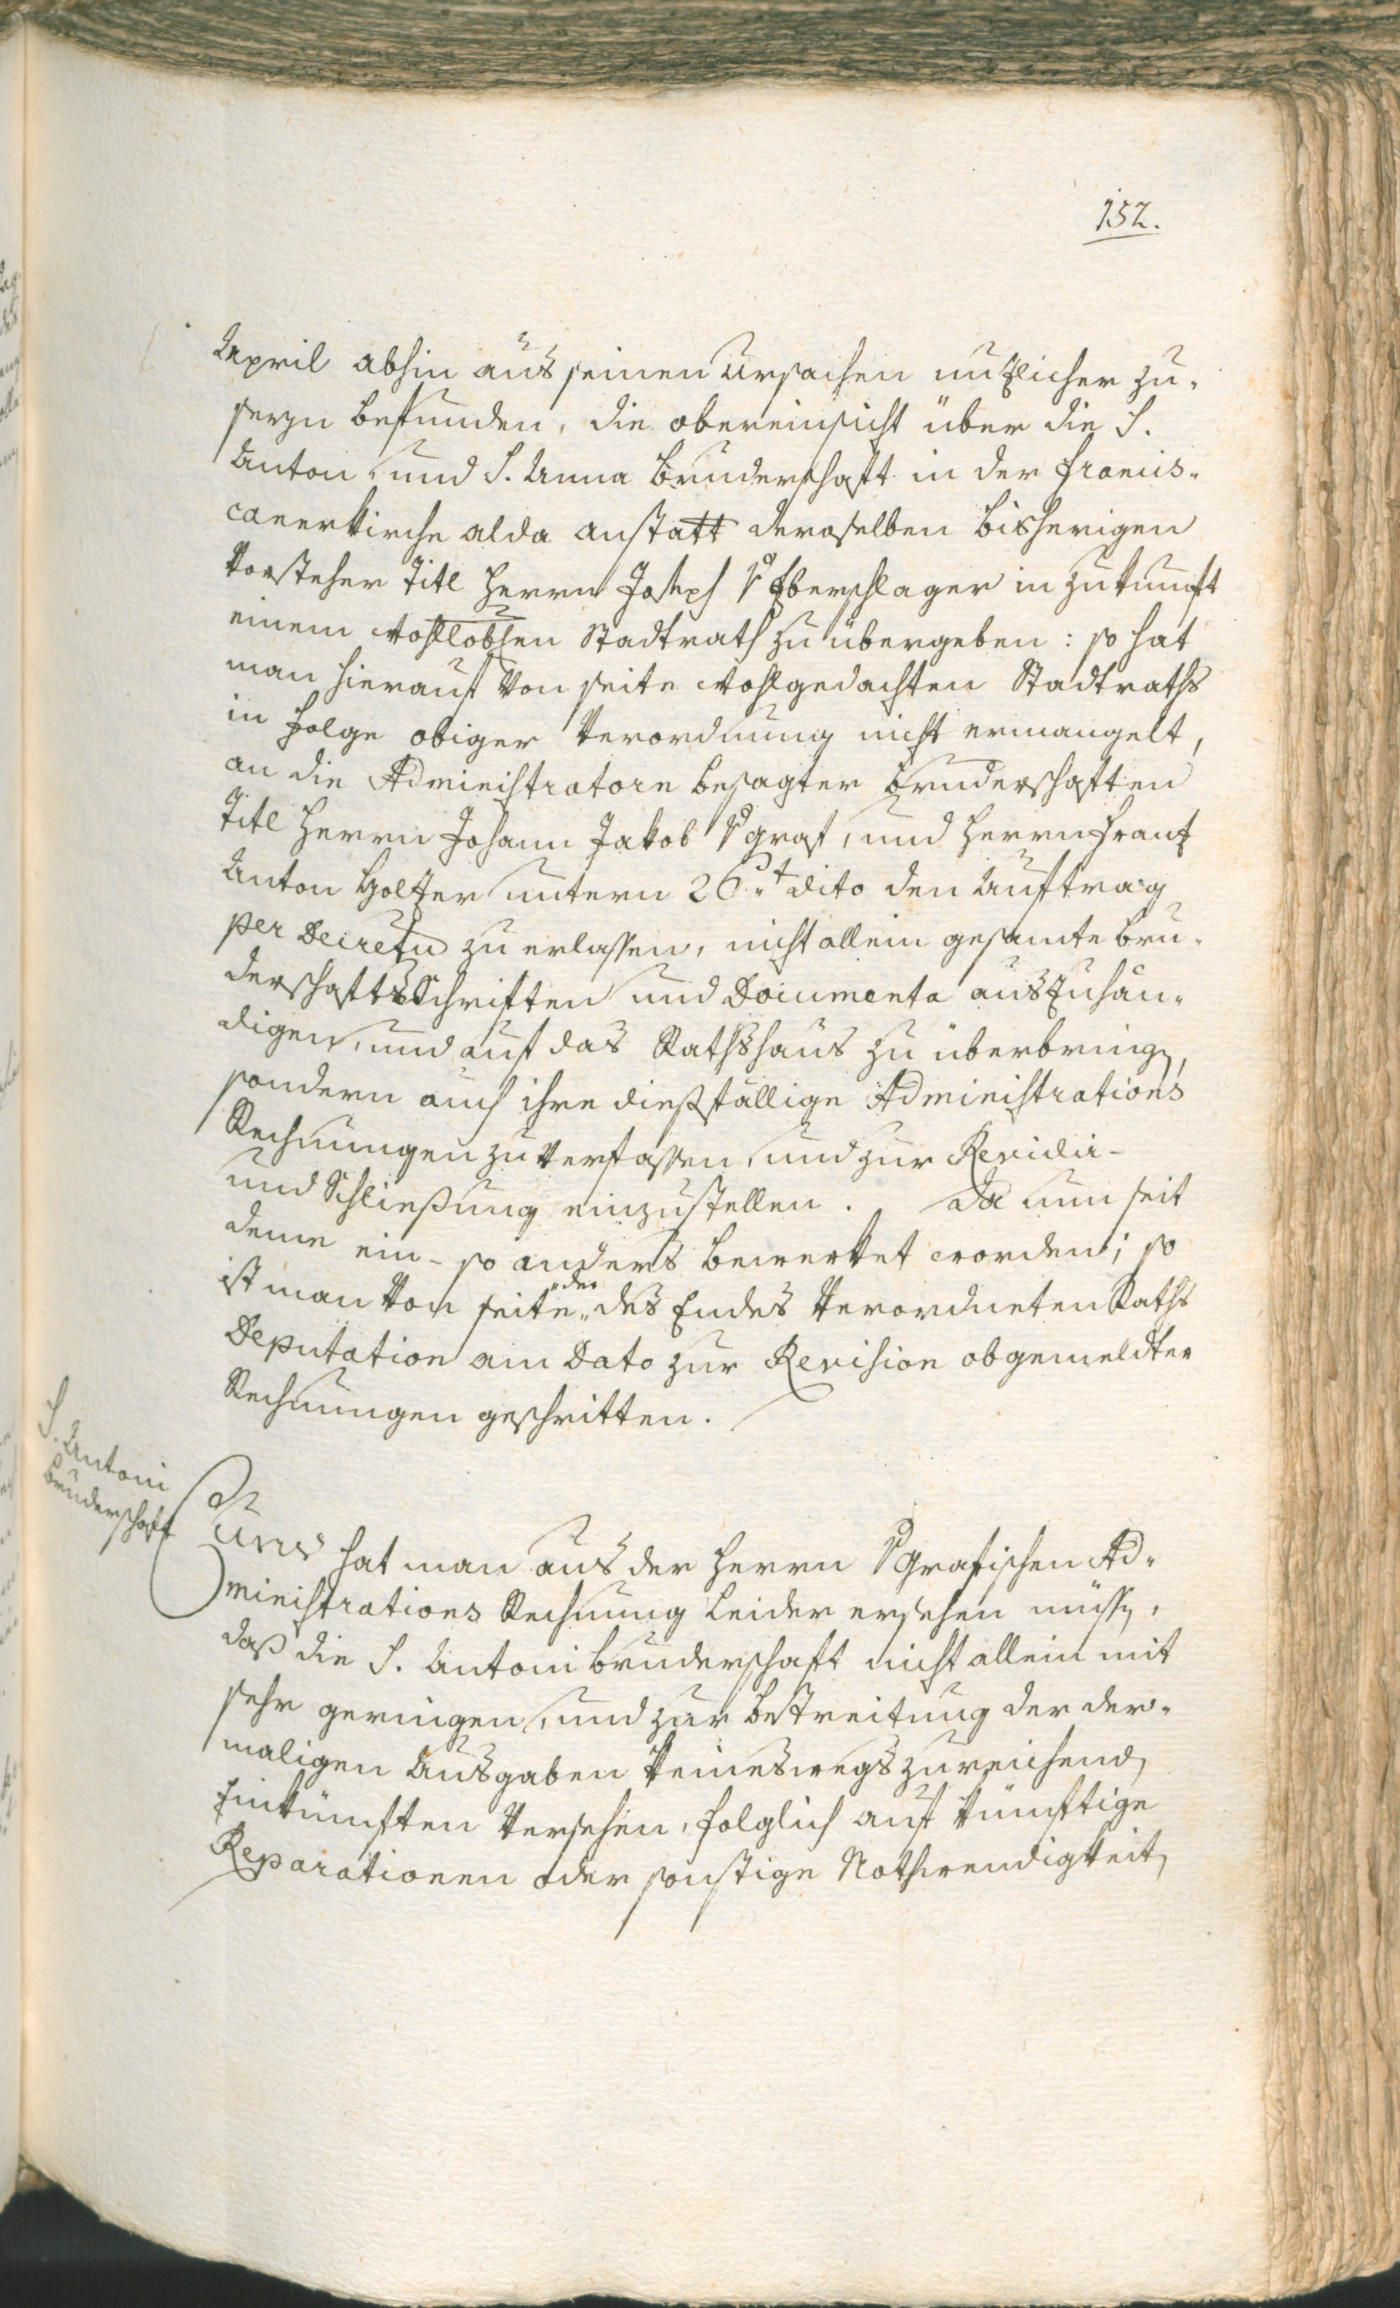 152.
April abhin aus seinen Ursachen nutzlicher zu-
seyn befunden, die obereinsicht über die S.
Anton- und S. Anna Bruderschaft in der Francis-
canerkirche alda anstatt deroselben bisherigen
Vorsteher Titl Herrn Joseph v Eberschlager in zukunft
einem wohllobhen Stadtrath zu übergeben: so hat
man hierauf von seite wohlgedachten Stadtraths
in folge obiger Verordnung nicht ermangelt,
an die Administratorn besagter Bruderschaften
Titl Herrn Johann Jakob v Graf, und Herrn Franz
Anton Holzer untern 26.t dito den Auftrag
per Decretu zu erlassen, nicht allein gesamte Bru-
derschafts Schriften und Documenta auszuhän-
digen, und auf das Rathshaus zu überbringen,
sondern auch ihre dießfällige Administrations
Rechnungen zu verfassen, und zur Revidir-
und Schließung einzustellen. Da nun seit
deme ein- so anders bewerket worden; so
ist man von seite der des Endes verordneten Raths
Deputation am Dato zur Revision obgemeldter
Rechnungen geschritten.
S. Antoni
Bruderschaft
Nun hat man aus der Herrn v Grafischen Ad-
ministrations Rechnung leider ersehen müssen,
daß die S. Antoni Bruderschaft nicht allein mit
sehr geringen, und zur Bestreitung der der-
maligen Ausgaben keineswegs zureichend
Einkünften versehen, folglich auf künftige
Reparationen oder sonstige Nothwendigkeiten